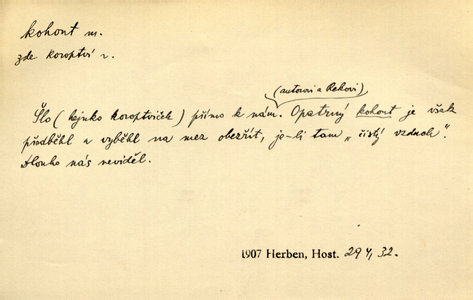 kohout m.
zde koroptví
(autorovi a Rekovi)
Šlo (hejnko koroptviček) přímo k nám. Opatrný kohout je však
předběhl a vyběhl na mez obezřít, je-li tam „čistý vzduch".
Dlouho nás neviděl.
1907 Herben, Host. 32.